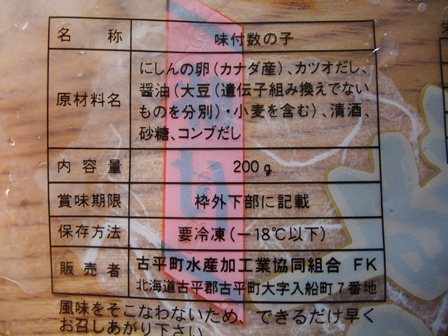 名称 味付数の子
原材料名 にしんの卵(カナダ産)、カツオだし、
醤油(大豆(遺伝子組み換えでない
ものを分別)・小麦を含む)、清酒、
砂糖、コンブだし
内容量 200g
賞味期限 枠外下部に記載
保存方法 要冷凍(-18℃以下)
販売者 古平町水産加工業協同組合 FK
北海道古平郡古平町大字入船町7番地
風味をそこなわないため、できるだけ早く
お召しあがり下さい